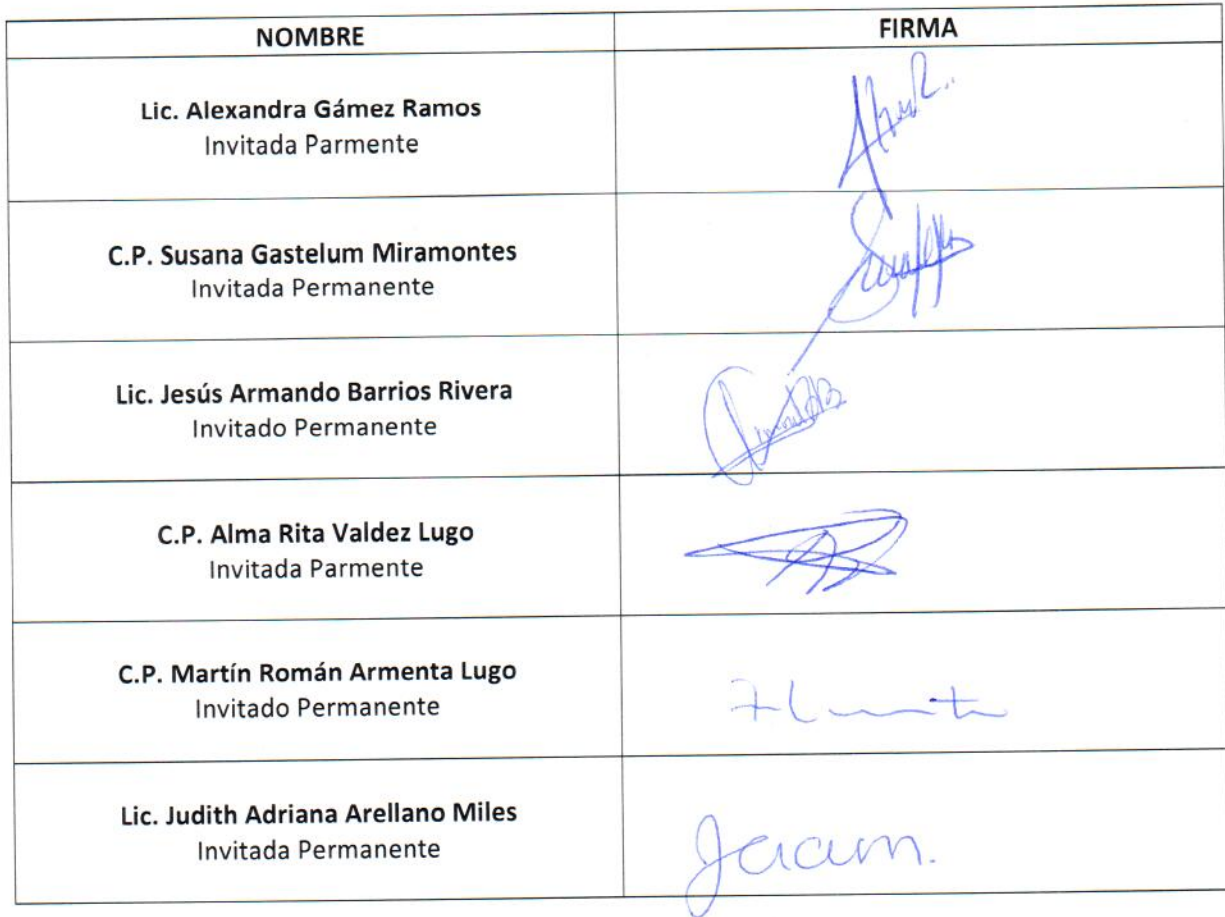 NOMBRE FIRMA
Lic. Alexandra Gámez Ramos
Invitada Parmente
C.P. Susana Gastelum Miramontes
Invitada Permanente
Lic. Jesús Armando Barrios Rivera
Invitado Permanente
C.P. Alma Rita Valdez Lugo
Invitada Parmente
C.P. Martín Román Armenta Lugo
Invitado Permanente
Lic. Judith Adriana Arellano Miles
Invitada Permanente